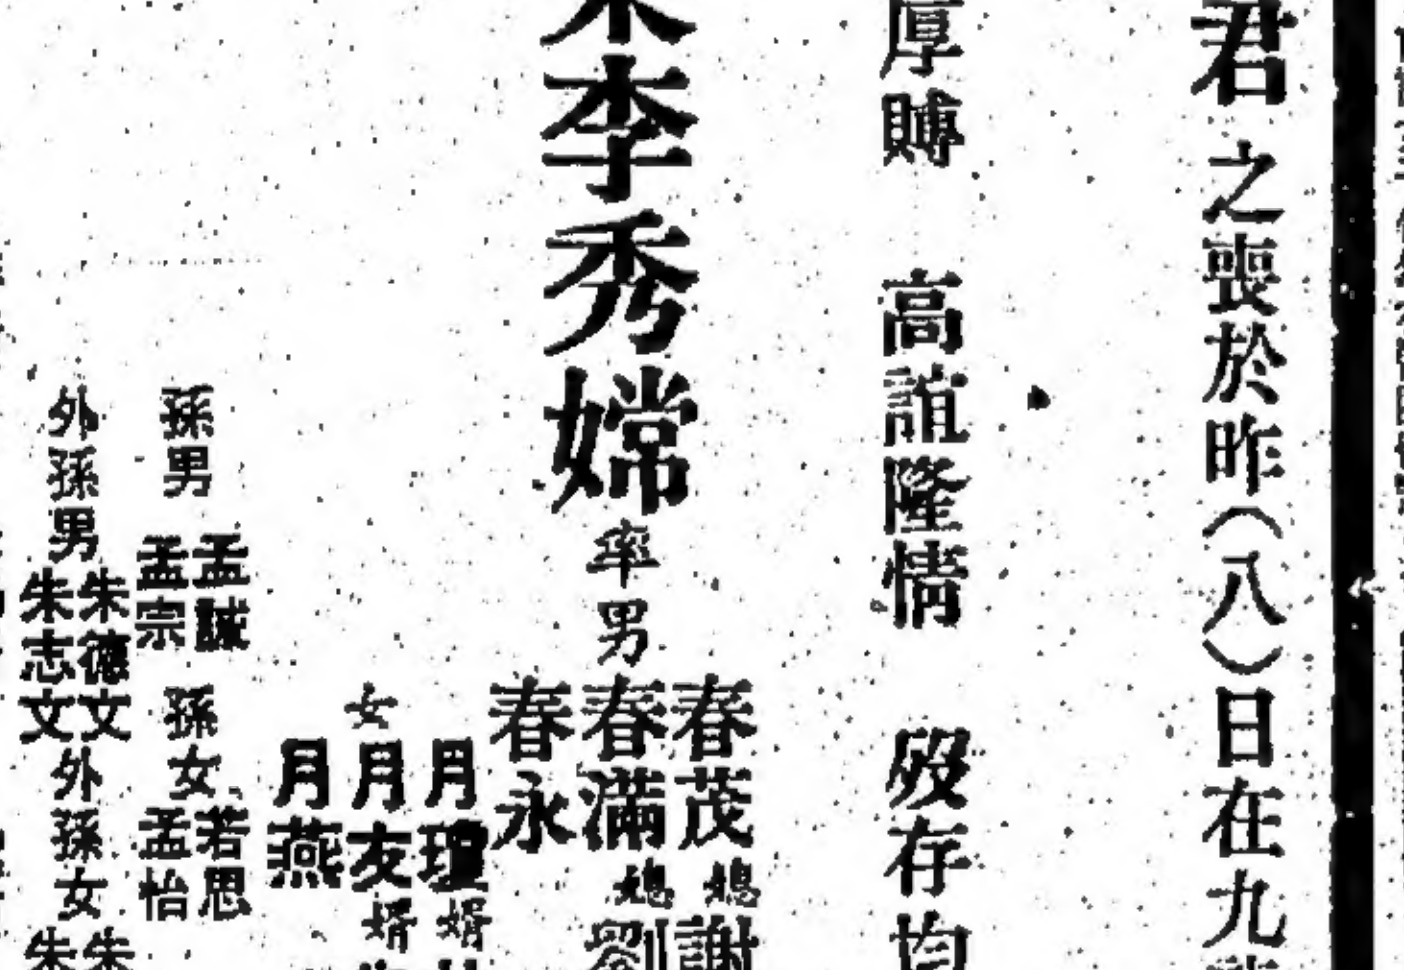 君之喪於昨(八)日在九
厚賻 高誼隆情 歿存均
李秀嫦率男
春茂媳謝
春滿媳劉
春永
女
月瓊婿
月友婿
月燕
孫男 孟誠 孫女 若思
孟宗 孟怡
外孫男 朱德文 外孫女 朱
朱志文 朱